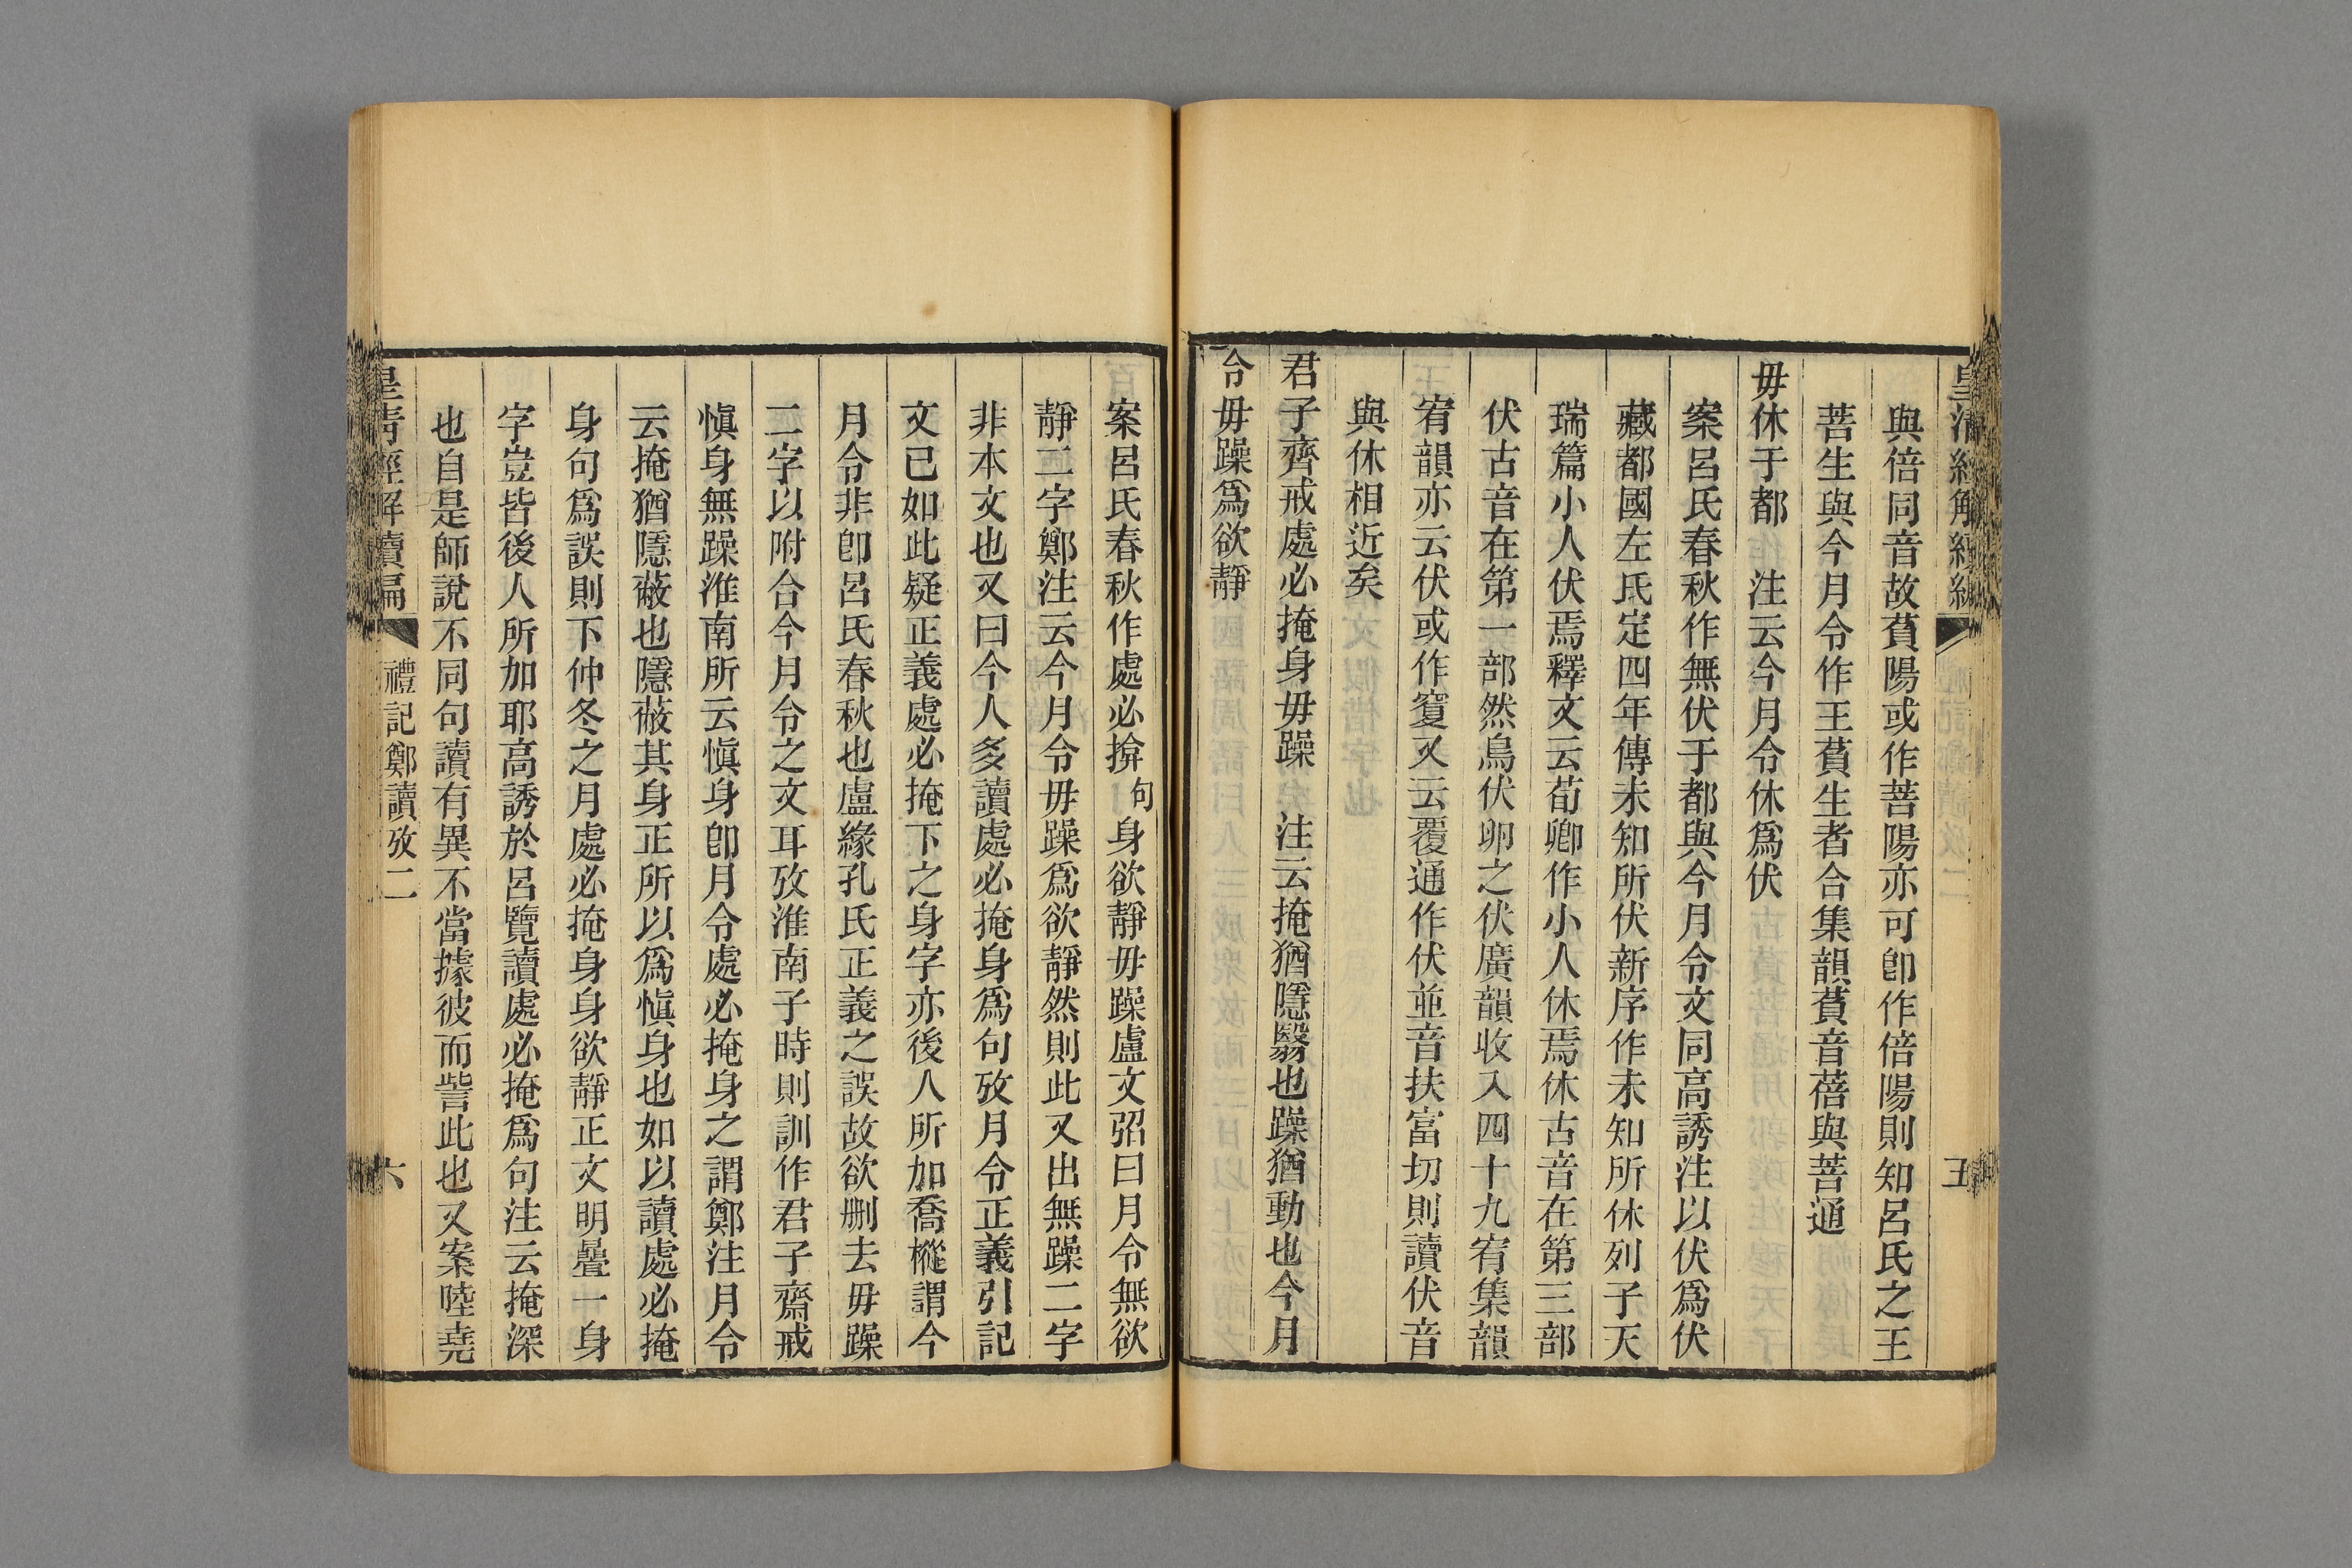 與倍同音故萯陽或作菩陽亦可卽作倍陽則知呂氏之王
菩生與今月令作王萯生者合集韻萯音蓓與菩通
毋休于都　注云今月令休爲伏
案呂氏春秋作無伏于都與今月令文同高誘注以伏爲伏
藏都國左氏定四年傳未知所伏新序作未知所休列子天
瑞篇小人伏焉釋文云荀卿作小人休焉休古音在第三部
伏古音在第一部然鳥伏卵之伏廣韻收入四十九宥集韻
宥韻亦云伏或作㝛又云覆通作伏並音扶富切則讀伏音
與休相近矣
君子齊戒處必掩身毋躁　注云掩猶隱翳也躁猶動也今月
令毋躁爲欲靜
五
案呂氏春秋作處必揜句身欲靜毋躁盧文弨曰月令無欲
靜二字鄭注云今月令毋躁爲欲靜然則此又出無躁二字
非本文也又曰今人多讀處必掩身爲句攷月令正義引記
文已如此疑正義處必掩下之身字亦後人所加喬樅謂今
月令非卽呂氏春秋也盧緣孔氏正義之誤故欲刪去毋躁
二字以附合今月令之文耳攷淮南子時則訓作君子齋戒
愼身無躁淮南所云愼身卽月令處必掩身之謂鄭注月令
云掩猶隱蔽也隱蔽其身正所以爲愼身也如以讀處必掩
身句爲誤則下仲冬之月處必掩身身欲靜正文明疊一身
字豈皆後人所加耶高誘於呂覽讀處必掩爲句注云掩深
也自是師說不同句讀有異不當據彼而訾此也又案陸堯
皇清經解續編
禮記鄭讀攷二
六